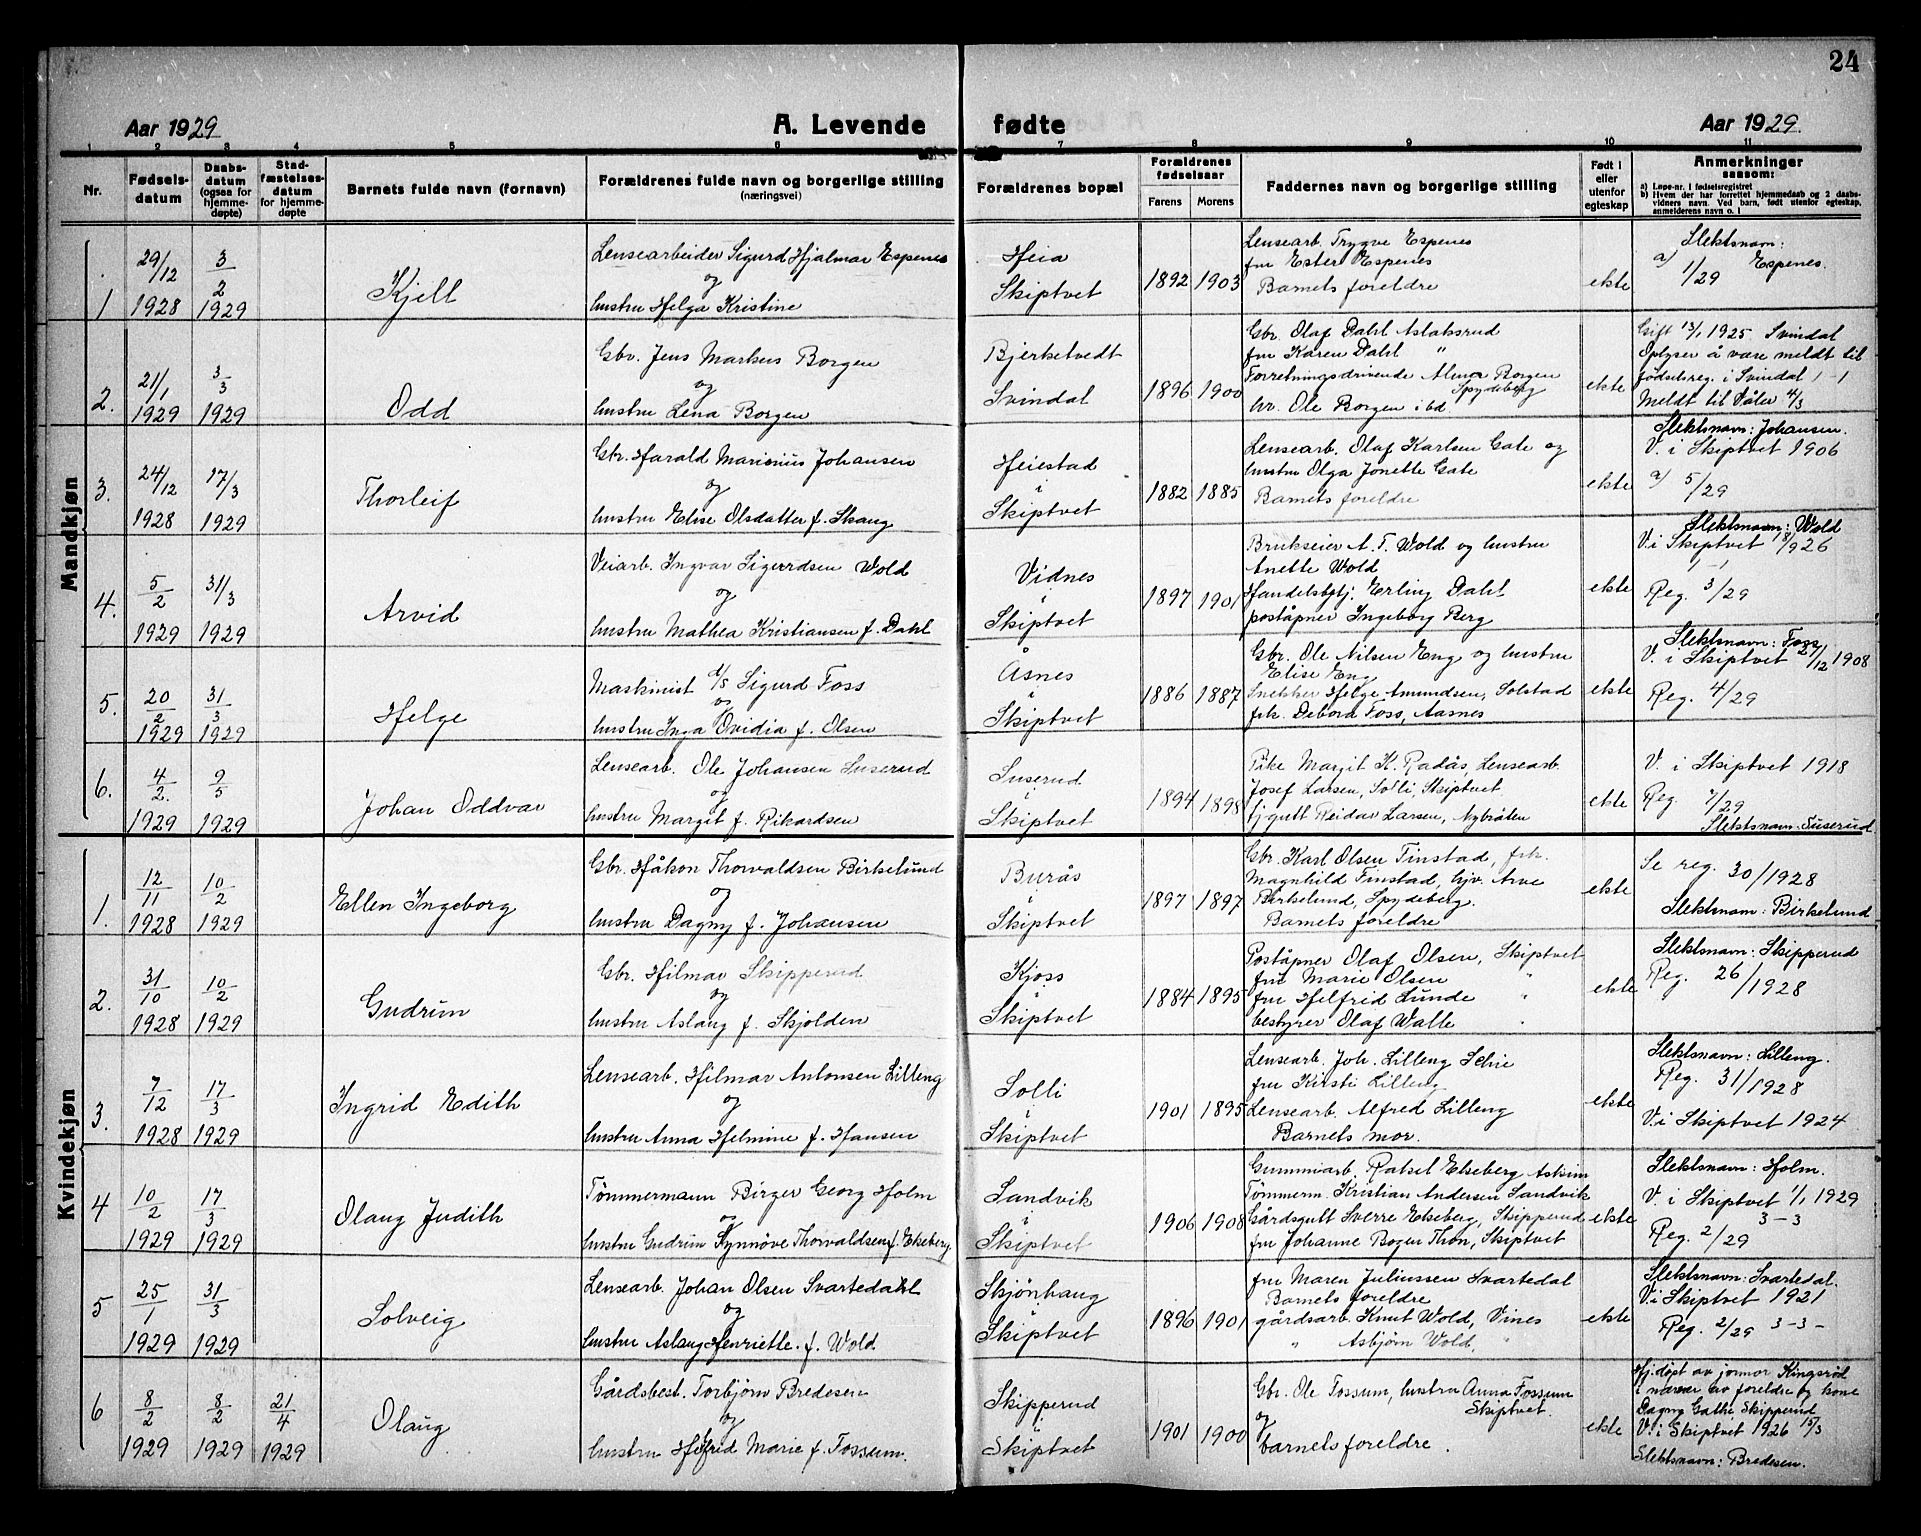 24
Aar 1929
A. Levende fødte
Aar 1929.
1 2 3 4 5 6 7 8 9 10 11
Nr.
Fødsels-
datum
Daabs-
datum
(ogsaa for
hjemme-
døpte)
Stad-
fæstelses-
datum
for hjemme-
døpte
Barnets fulde navn (fornavn)
Forældrenes fulde navn og borgerlige stilling
(næringsvei)
Forældrenes bopæl
Forældrenes
fødselsaar
Farens Morens
Faddernes navn og borgerlige stilling
Født i
eller
utenfor
egteskap
Anmerkninger
saasom:
a) Løpe-nr. i fødselsregistret
b) Hvem der har forrettet hjemmedaab og 2 daabs-
vidners navn. Ved barn, født utenfor egteskap,
anmelderens navn o. l
Mandkjøn
1
29/12
1928
3/2
1929
Kjell
Lensearbeider Sigurd Hjalmar Espenes
og
hustru Helga Kristine
Heia
Skiptvet
1892 1903
Lensearb. Trygve Espenes
fru Ester Espenes
Barnets foreldre
ekte
Slektsnavn:
a) Espenes.
1/29
2.
21/1
1929
3/3
1929
Odd
Gbr. Jens Markus Borgen
og
hustru Lena Borgen
Bjerketvedt
Svindal
1896 1900
Gbr. Olaf Dahl Aslaksrud
fru Karen Dahl "
Forretningsdrivende Alma Borgen
Spydeberg
hr. Ole Borgen ibd
ekte
Gift 13/1 1925 Svindal
Oplyser å være meldt til
fødselsreg. i Svindal 1-1
Meldt til Våler 4/3
3.
24/12
1928
17/3
1929
Thorleif
Gbr. Harald Marinius Johansen
og
hustru Elise Olsdatter f. Skaug
Heiestad
i
Skiptvet
1882 1885
Lensearb. Olaf Karlsen Gate og
hustru Olga Jonette Gate
Barnets foreldre
ekte
Slektsnavn: Johansen.
V. i Skiptvet 1906
a) 5/29
4.
5/2
1929
31/3
1929
Arvid
Veiarb. Ingvar Sigurdsen Wold
og
hustru Mathea Kristiansen f. Dahl
Vidnes
i
Skiptvet
1897 1901
Brukseier A. T. Wold og hustru
Anette Wold
Handelsbetj. Erling Dahl
poståpner Ingeborg Berg
ekte
Slektsnavn: Wold
V. i Skiptvet 18/1 1926
Reg. 3/29
5.
20/2
1929
31/3
1929
Helge
Maskinist d/s Sigurd Foss
og
hustru Inga Ovidia f. Olsen
Åsnes
i
Skiptvet
1886 1887
Gbr. Ole Nilsen Eng og hustru
Elise Eng
Snekker Helge Amundsen, Solstad
frk. Debora Foss, Aasnes
ekte
Slektsnavn: Foss
V. i Skiptvet 27/12 1908
Reg. 4/29
6.
4/2.
1929
9/5
1929
Johan Oddvar
Lensearb. Ole Johansen Suserud
og
hustru Margit f. Rikardsen
Suserud
i
Skiptvet
1894 1898
Pike Margit K. Radås, Lensearb.
Josef Larsen, Solli, Skiptvet
tjgutt Reidar Larsen, Nybråten
ekte
V. i Skiptvet 1918
Reg. 7/29
Slektsnavn: Suserud
Kvindekjøn
1.
12/11
1928
10/2
1929
Ellen Ingeborg
Gbr. Håkon Thorvaldsen Birkelund
og
hustru Dagny f. Johansen
Burås
i
Skiptvet
1897 1897
Gbr. Karl Olsen Finstad, frk.
Magnhild Finstad, Gjv. Arve
Birkelund, Spydeberg.
Barnets foreldre
ekte
Se reg. 30/1928
Slektsnam: Birkelund
2.
31/10
1928
10/2
1929
Gudrun
Gbr. Hilmar Skipperud
og
hustru Aslaug f. Skjolden
Kjoss
i
Skiptvet
1884 1895
Poståpner Olaf Olsen, Skiptvet
fru Marie Olsen "
fru Helfrid Lunde "
bestyrer Olaf Walle "
ekte
Slektsnavn: Skipperud
Reg. 26/1928
3.
7/12
1928
17/3
1929
Ingrid Edith
Lensearb. Hilmar Antonsen Lilleng
og
hustru Anna Helmine f. Hansen
Solli
i
Skiptvet
1901 1895
Lensearb. Joh. Lilleng
fru Kirsti Lilleng
Lensearb. Alfred Lilleng
Barnets mor.
ekte
Slektsnavn: Lilleng.
Reg. 31/1928
V. i Skiptvet 1924
4
10/2
1929
17/3
1929
Olaug Judith
Tømmermann Birger Georg Holm
og
hustru Gudrun Synnøve Thorvaldsen f. Ekeberg
Sandvik
i
Skiptvet
1906 1908
Gummiarb. Ekeberg Askim
Tømmerm. Kristian Andersen Sandvik
Gårdsgutt Sverre Ekeberg, Skipperud
fru Johanne Bøger Thon, Skiptvet
ekte
Slektsnavn: Holm.
V. i Skiptvet 1/1 1929
3-3
Reg. 2/29
5
25/1
1929
31/3
1929
Solveig
Lensearb. Johan Olsen Svartedahl
og
hustru Aslaug Henriette. f. Wold
Skjønhaug
i
Skiptvet
1896 1901
fru Maren Juliussen Svartedal
Barnets foreldre
gårdsarb. Knut Wold, Vines
" Asbjørn Wold, "
ekte
Slektsnavn: Svartedal.
V. i Skiptvet 1921
Reg. 2/29 3-3-
6
8/2
1929
8/2
1929
21/4
1929
Olaug
Gårdsbest. Torbjørn Bredesen
og
hustru Hilfrid Marie f. Fossum.
Skipperud
i
Skiptvet
1901 1900
Gbr. Ole Fossum, hustru Anna Fossum
Skiptvet.
og
barnets foreldre.
ekte
Hj.døpt av jormor Kingsrød
i nærvær av foreldre og kone
Dagny Gathe Skipperud
V. i Skiptvet 1926 15/3
Slektsnavn: Bredesen.